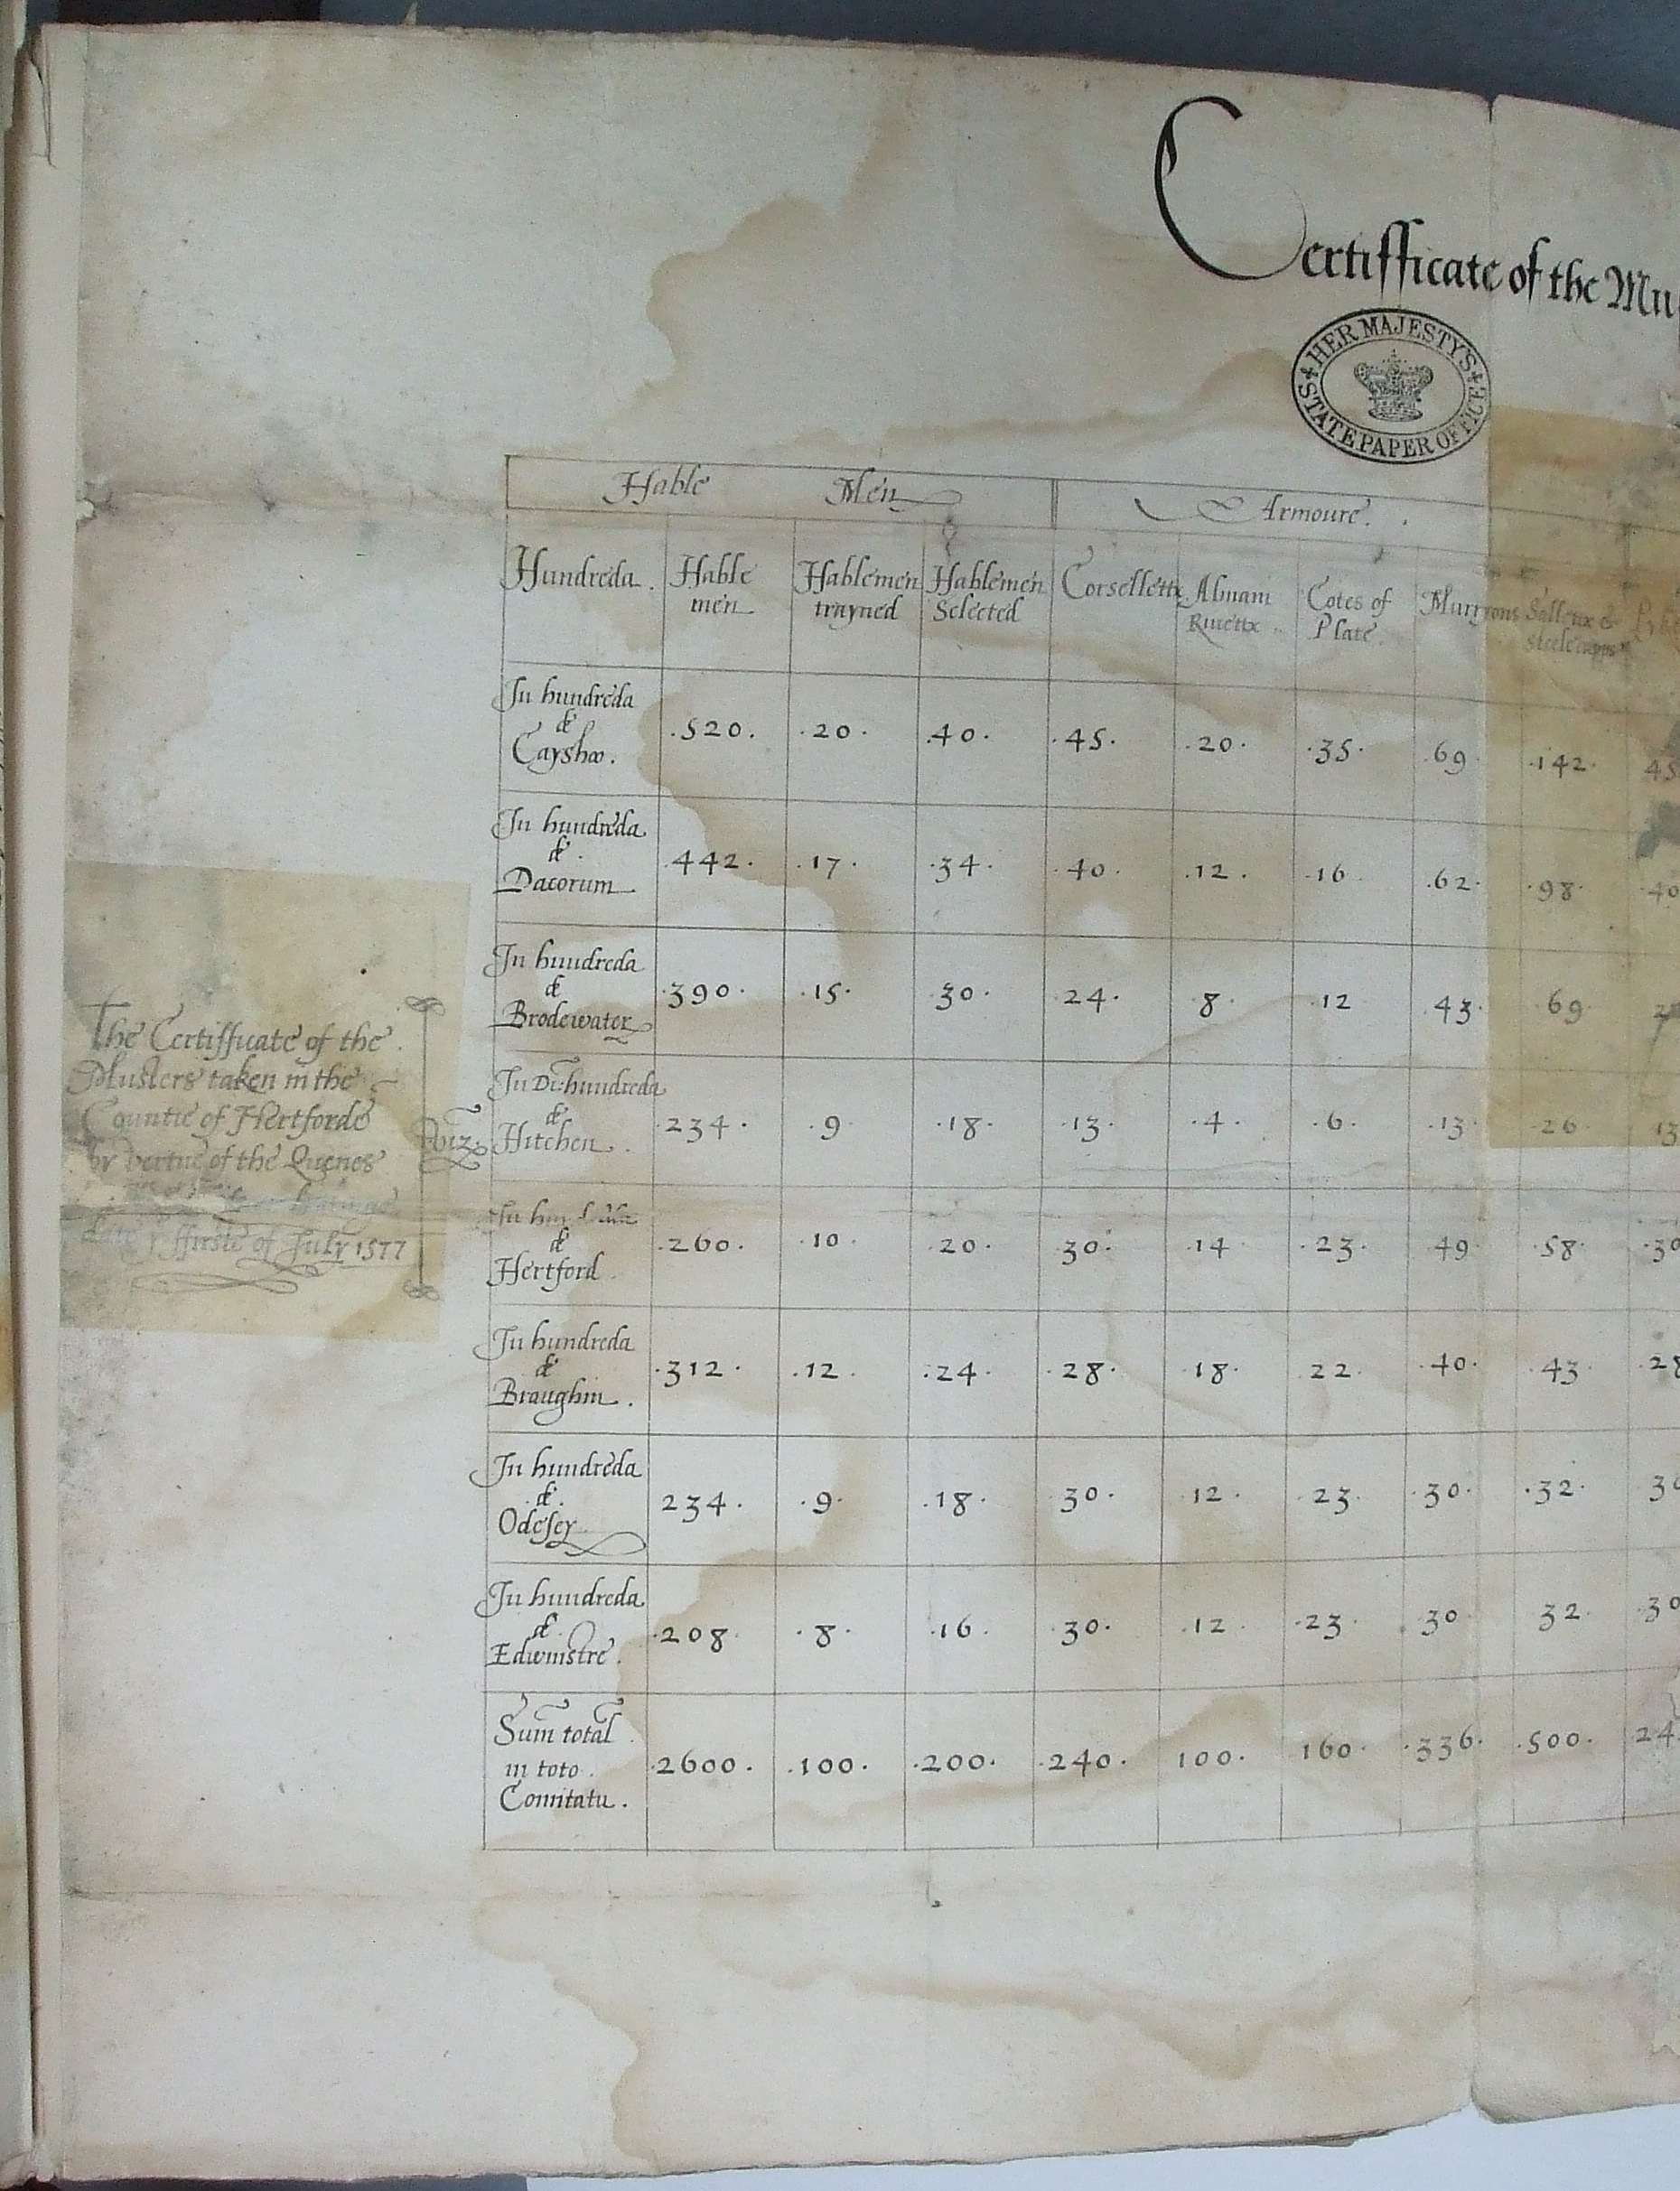 Certifficate of the Mu
HER MAJESTY'S
STATE PAPER OFFICE
Hable Men
Armoure.
Hundreda. Hable men Hablemen trayned Hablemen Selected Corsellettx Almain Rivettx Cotes of Plate. Murryons Sallettx & steelecapps
In hundreda
de
Cayshoo. .520. .20. .40. .45. .20. .35. .69. .142. 45
In hundreda
de
Dacorum .442. .17. .34. .40. .12. .16. .62. .98. .40
In hundreda
de
Brodewater .390. .15. .30. .24. .8. .12 43. .69.
The Certifficate of the
Musters taken in the
Countie of Hertforde
by vertue of the Quenes
date ffirste of July 1577
viz.
In Di: hundreda
de
Hitchen. .234. .9. .18. .13. .4. .6. .13. .26. 13
In
de
Hertford .260. .10. .20. .30. .14 .23. .49. .58. .30
In hundreda
de
Braughin. .312. .12. .24. .28. .18. 22. .40. .43. .28
In hundreda
de.
Odesey 234. .9. .18. .30. .12. .23. .30. .32. 30
In hundreda
de.
Edwinstre. .208. .8. .16. .30. .12. .23. .30 32. .30
Sum total
in toto.
Comitatu. .2600. .100. .200. .240. 100. 160. .336. .500. 24